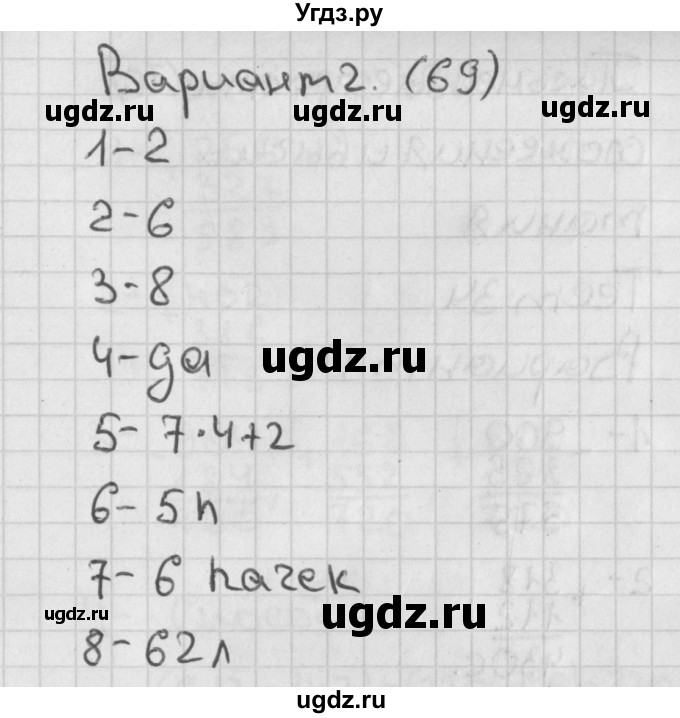 Угдз.ру
Вариант 2. (69)
ugdz.ru ugdz.ru
1-2
2-6
3-8
4-да
ugdz.ru
5- 7·4+2
6- 5 п
7- 6 пачек
ugdz.ru ugdz.ru
8-62 л
ugdz.ru